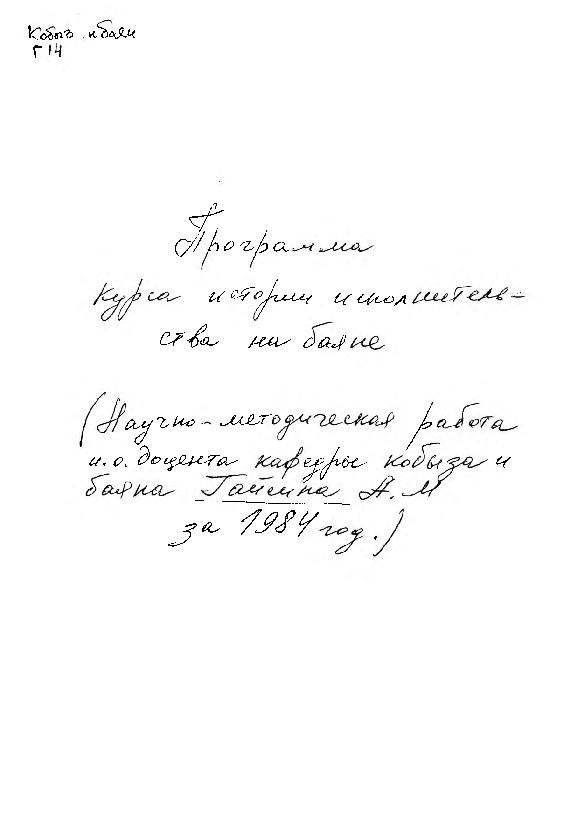 Кобыз и баян
Г 14
Программа
курса истории исполнитель-
ства на баяне
(Научно-методическая работа
и.о. доцента кафедры кобыза и
баяна Гайсина А.М
за 1984 год.)